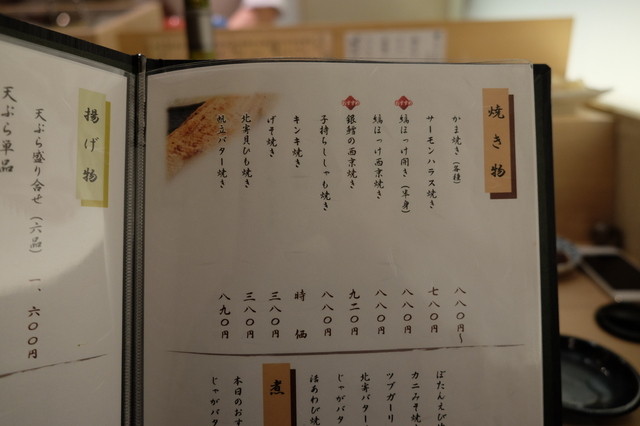 焼き物
かま焼き(各種) 八八〇円〜
サーモンハラス焼き 七八〇円
縞ほっけ開き(半身) 八八〇円
縞ほっけ西京焼き 八八〇円
銀鱈の西京焼き 九二〇円
子持ちししゃも焼き 八八〇円
キンキ焼き 時価
げそ焼き 三八〇円
北寄貝ひも焼き 三八〇円
帆立バター焼き 八九〇円
ぼたんえび
カニみそ焼
ツブガーリ
北寄バター
じゃがバタ
活あわび焼
煮
本日のおす
じゃがバタ
揚げ物
天ぷら盛り合せ(六品) 一、六〇〇円
天ぷら単品